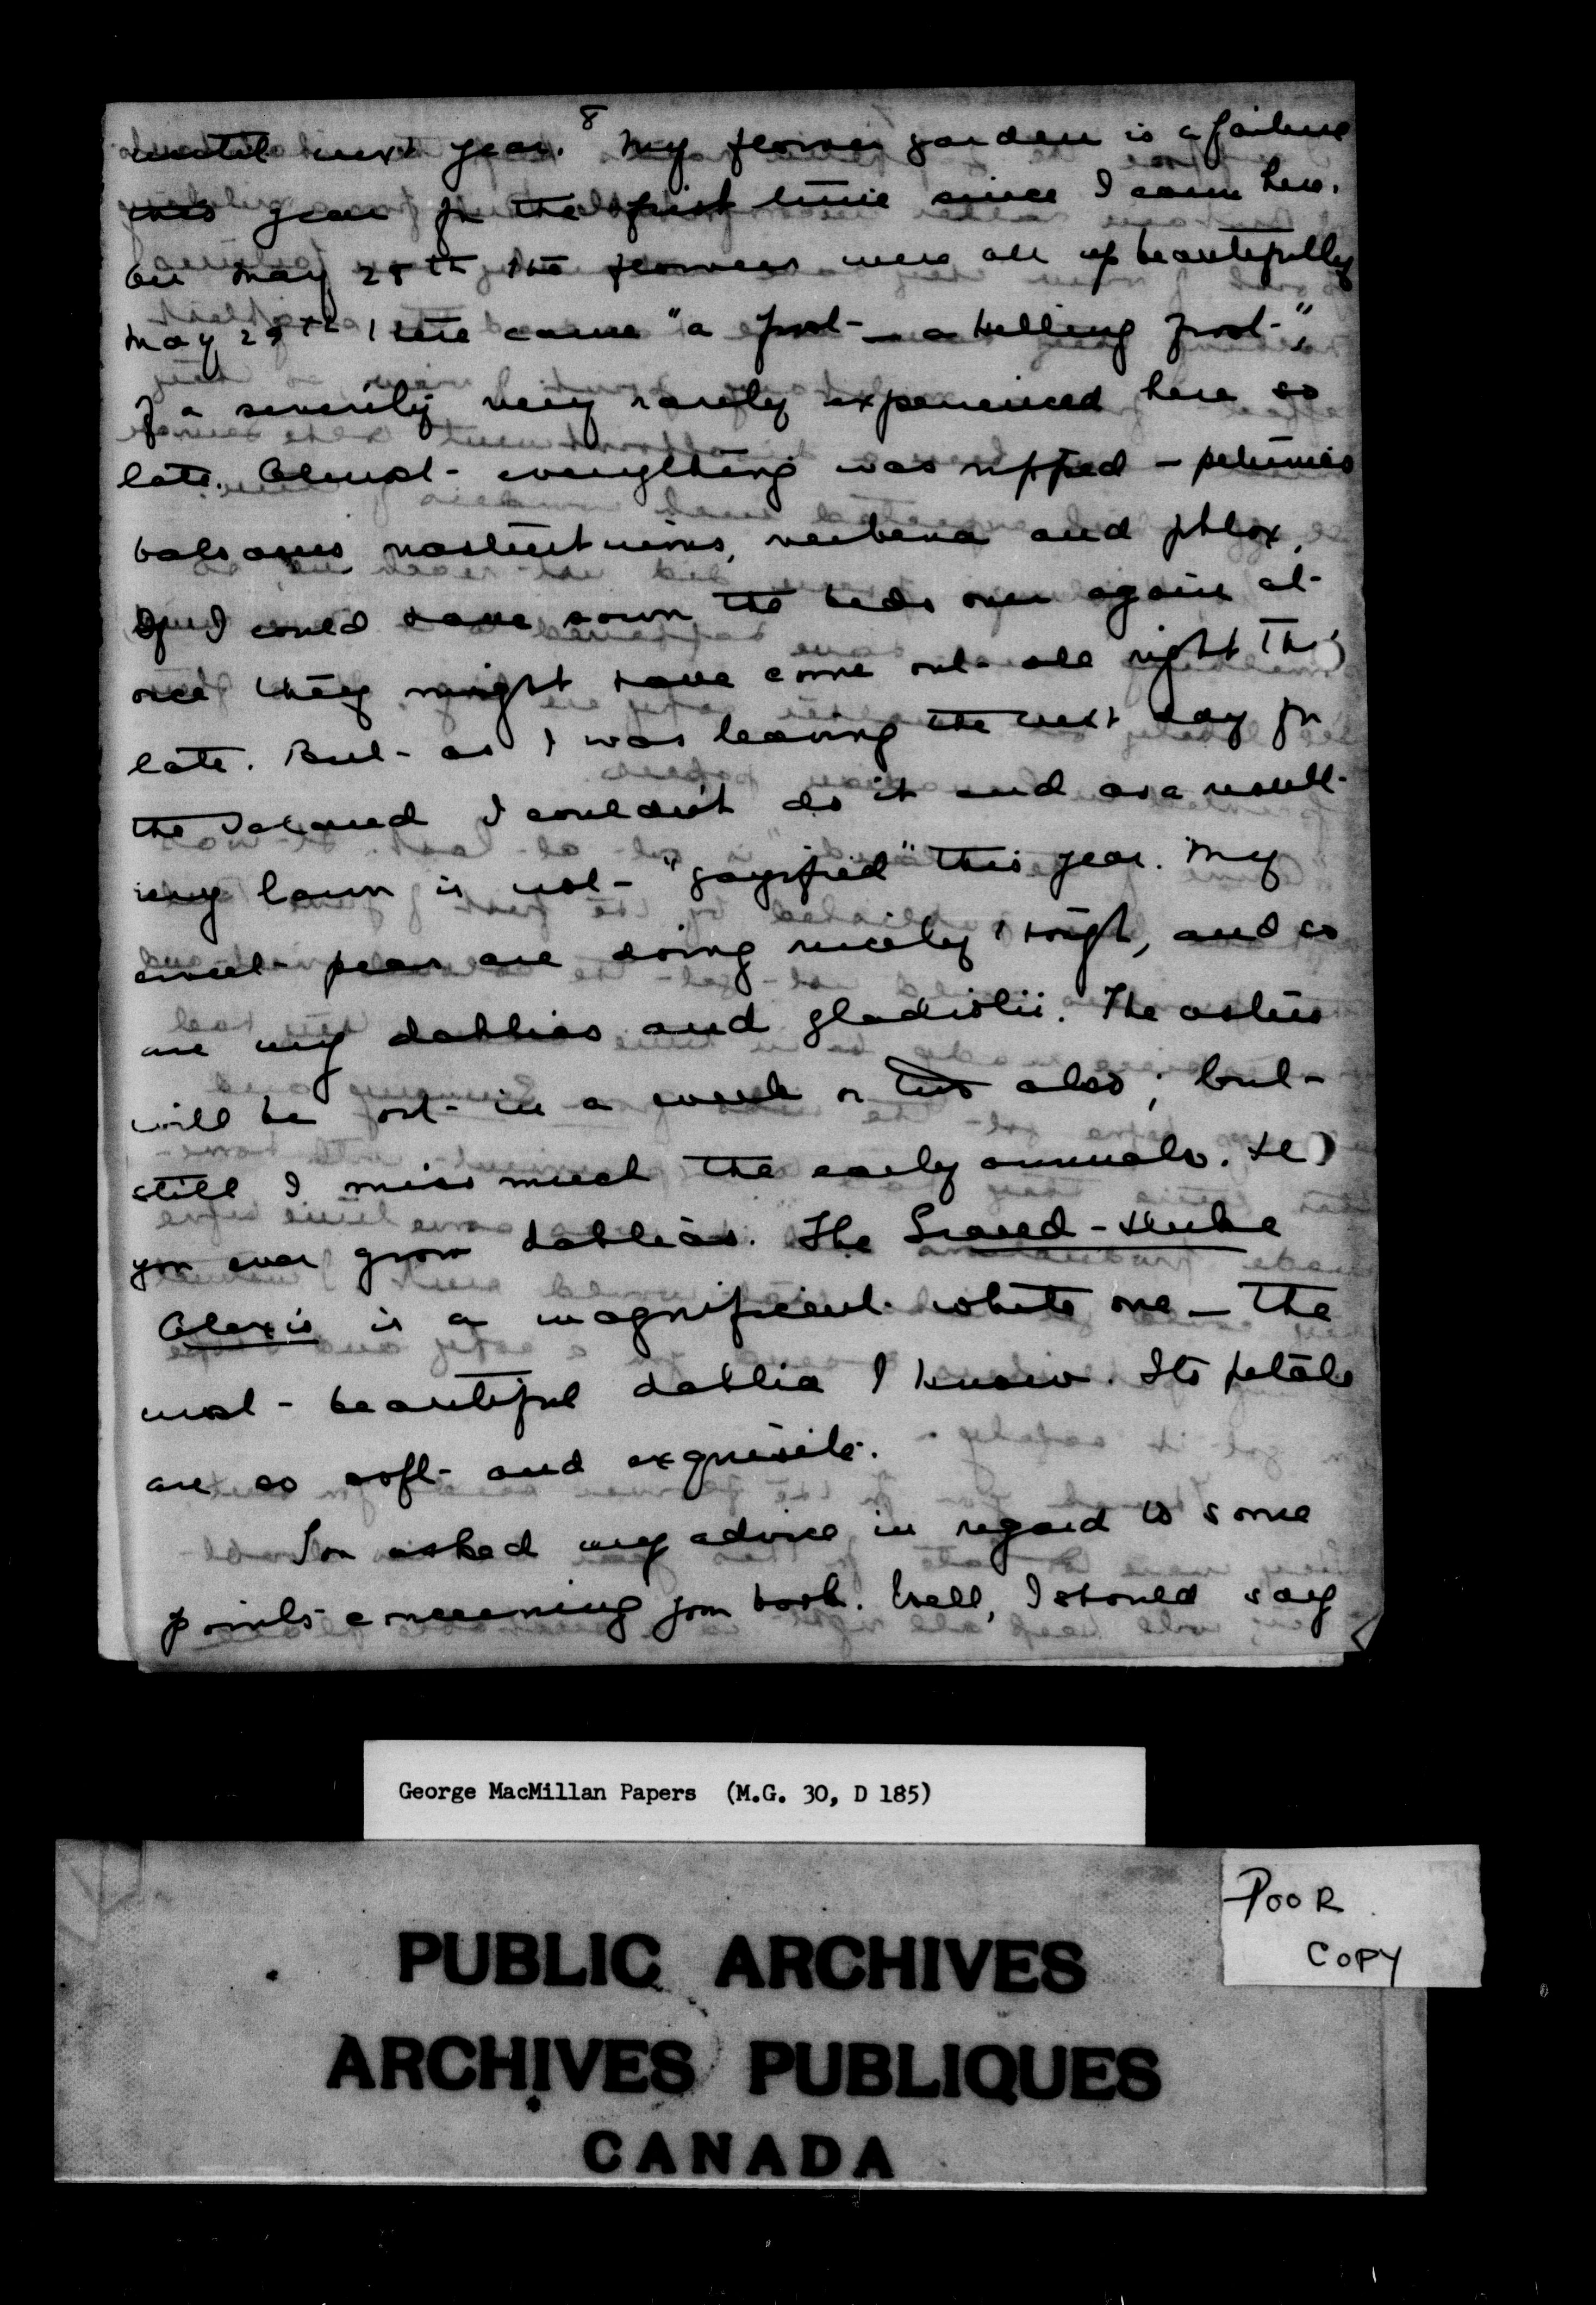 8
until next year. My flower garden is a failure
this year for the first time since I came here.
On May 28th the flowers were all up beautifully
May 29th there came "a frost - a killing frost",
of a severity very rarely experienced here so
late. Almost everything was nipped - petunias
balsams nasturtiums, verbena and phlox.
If I could have sown the beds over again at
once they might have come out all right tho'
late. But as I was leaving the next day for
the Island I couldn't do it and as a result
my lawn is not "gayified" this year. My
sweet peas are doing nicely though, and so
are my dahlias and gladiolii. The asters
will be out in a week or two also; but
still I miss much the early annuals.
you ever grow dahlias. The Grand-Duke
Alexis is a magnificent white one - the
most beautiful dahlia I know. Its petals
are so soft and exquisite.
You asked my advice in regard to some
points concerning your book. Well, I should say
George MacMillan Papers (M.G. 30, D 185)
POOR
COPY
PUBLIC ARCHIVES
ARCHIVES PUBLIQUES
CANADA